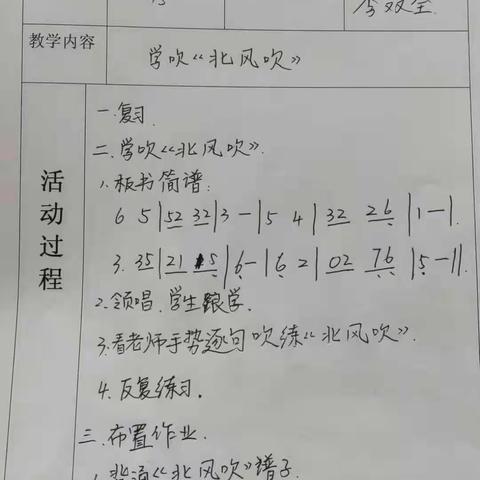 李双全
教学内容
学吹《北风吹》
活动过程
一.复习.
二.学吹《北风吹》.
1.板书简谱:
6 5|52 32|3 -|5 4|32 26|1-|.
3. 35|21 5|6-|6 2|02 76|5-||.
2.领唱.学生跟学.
3.看老师手势逐句吹练《北风吹》.
4.反复练习.
三.布置作业.
1.背诵《北风吹》谱子.